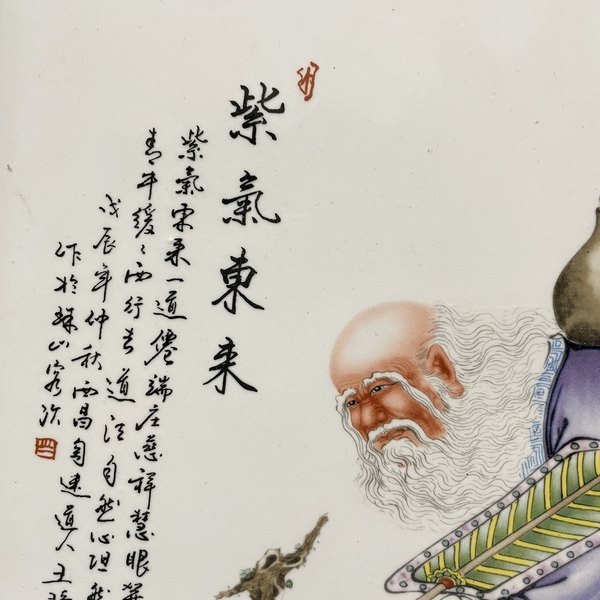 紫氣東来
紫氣東来一道僊端庄慈祥慧眼
青牛緩〻西行去道法自然心坦然
戊辰年仲秋西昌匋迷道人王
作於珠山客次